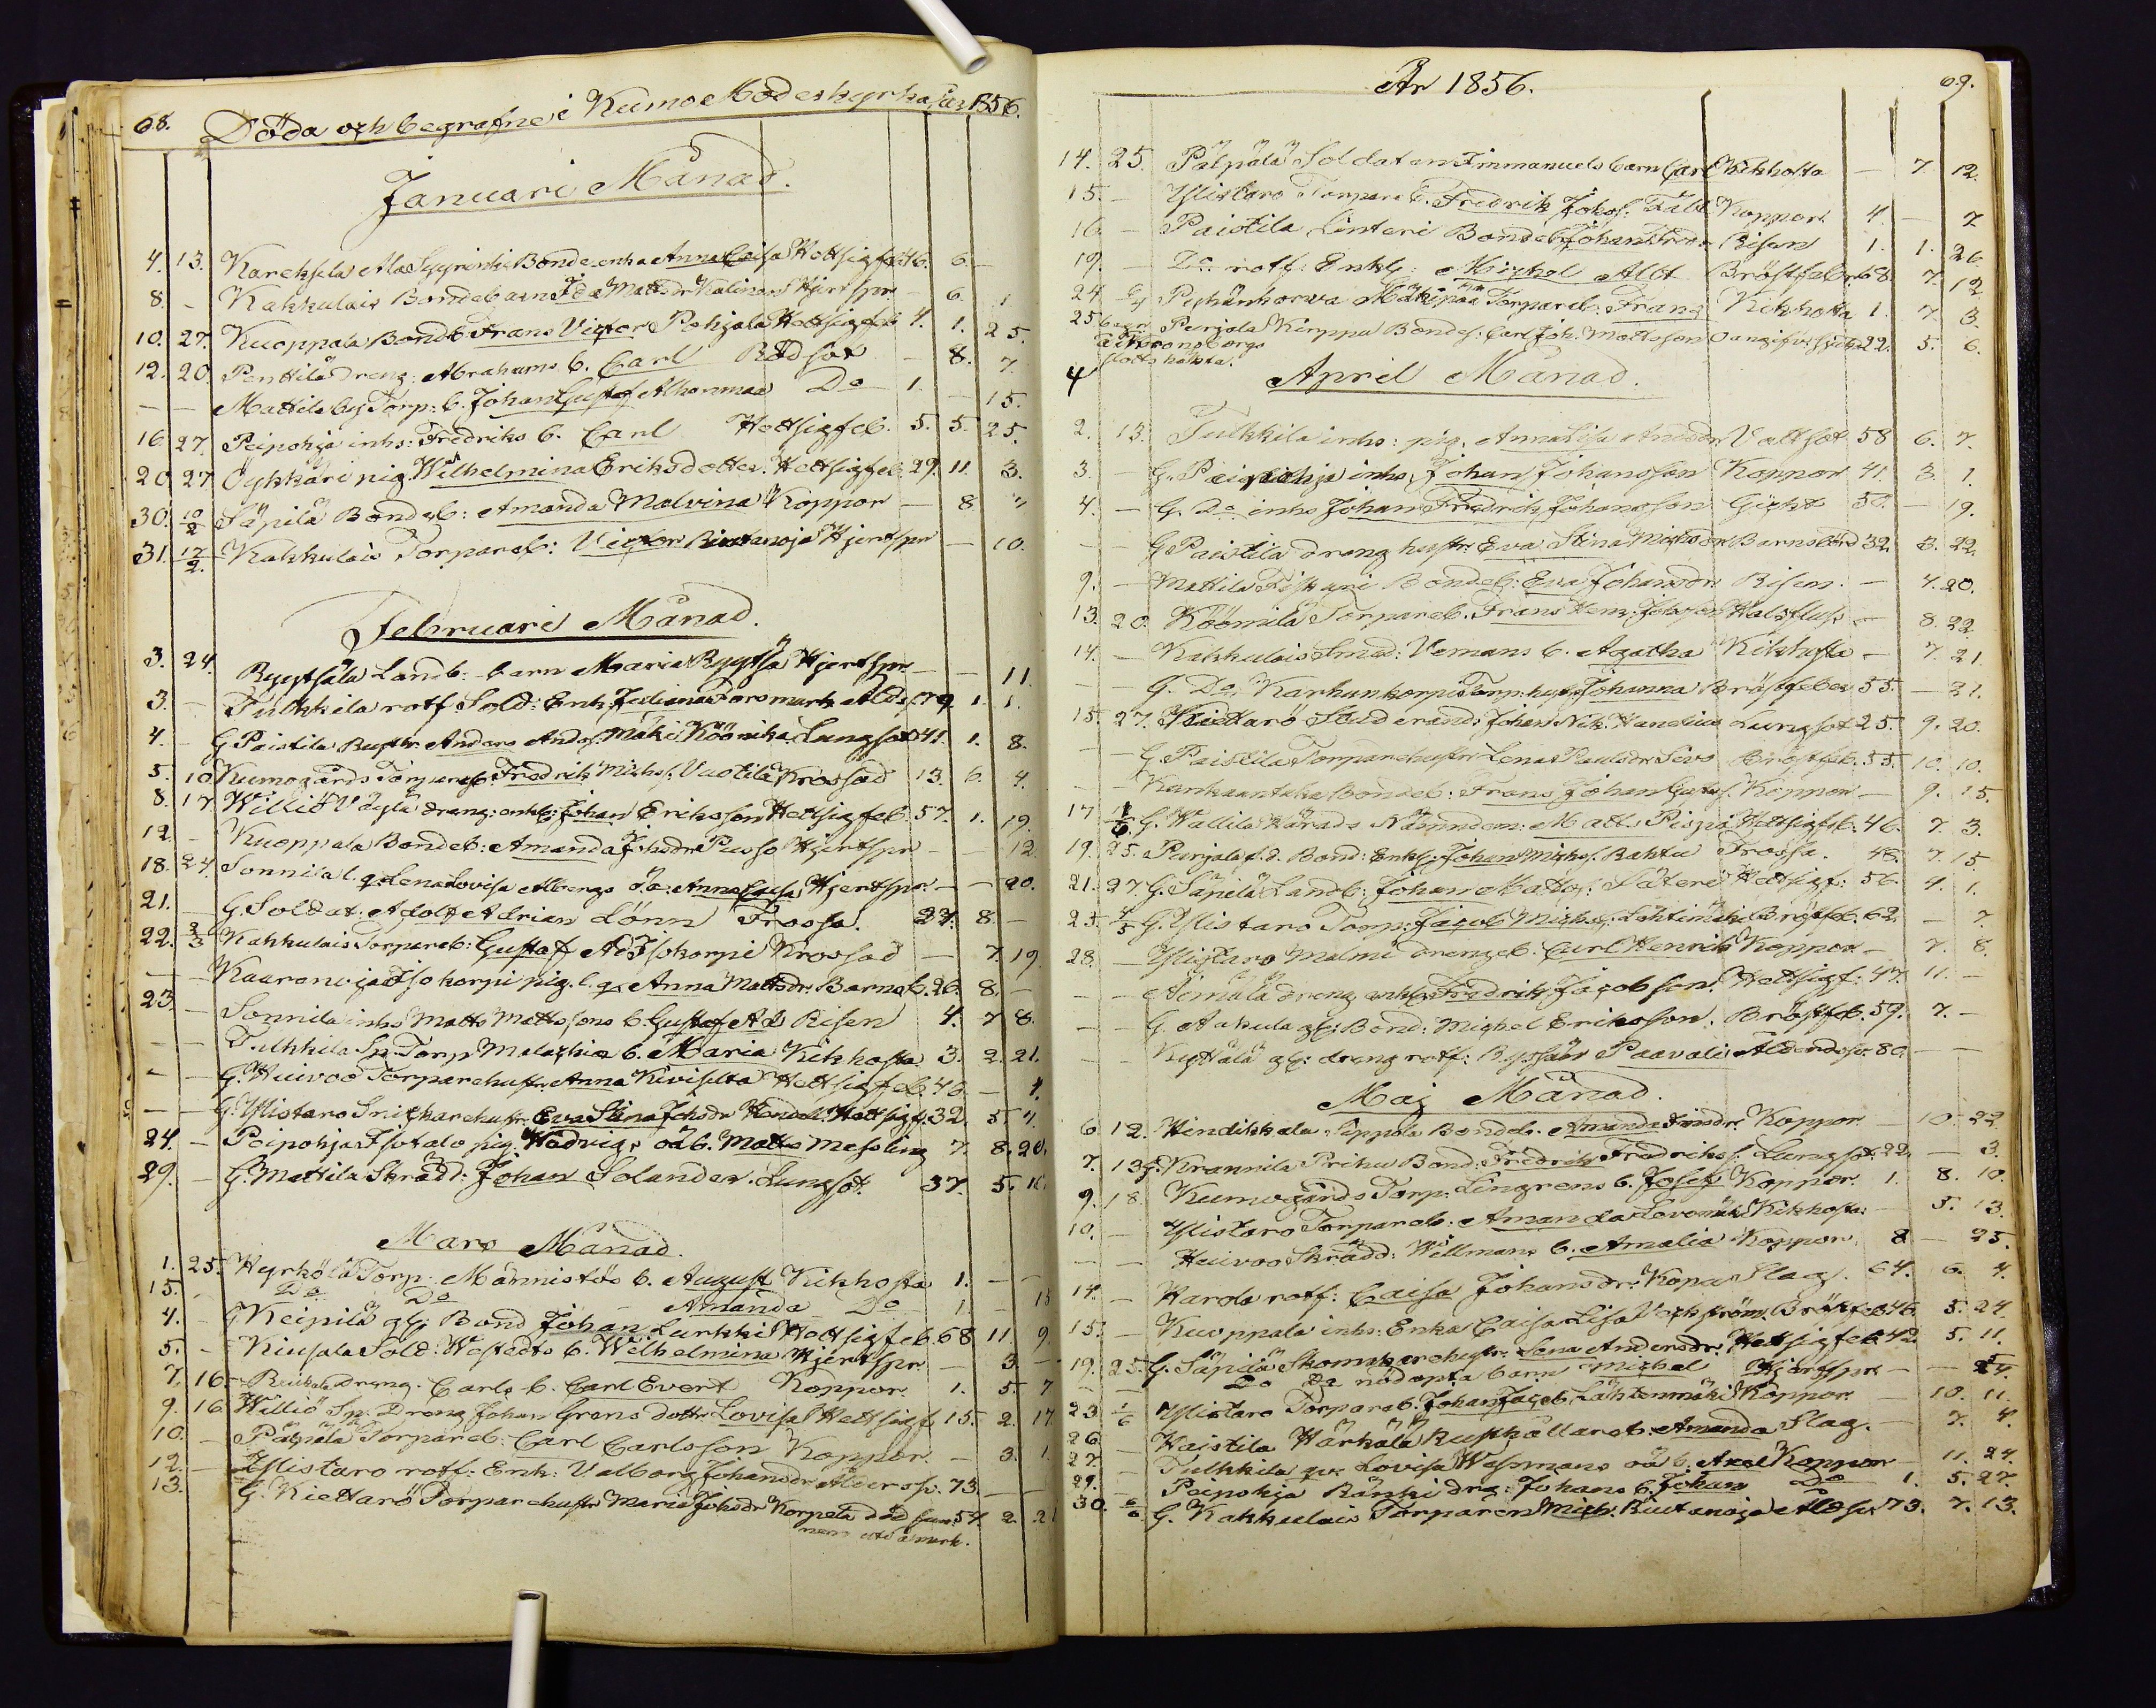 68. Döda och begrafne i Kumo Moderkyrka år 1856.
Januari Månad.
4. 13. Kareksela Ala Bondeenka Anna Caisa Hettsigfeb. 46. 6. –
8. – Kakkulais Bondebarn Ida Mattsdr Kalinen Hjertspr – 6. 1.
10. 27. Kuoppala Bondb. Frans Victor Pohjala Hettsigfeb 4. 1. 25.
12. 20. Penttilä dreng: Abrahams b. Carl Rödsot – 8. 7.
– – Mattila Torp: b. Johan Gustaf Alhonmaa Do 1. – 15.
16. 27. Peipohja inhs: Fredriks b. Carl Hettsigfeb. 5. 5. 25.
20 27 Öykkäri pig. Wilhelmina Eriksdotter. Hettsigfeb. 29. 11. 3.
30. 10/2 Säpilä Bondeb: Amanda Malvina Koppor – 8 "
31. 17/2. Kakkulais Torpareb: Victor Riutanoja Hjertspr – 10.
Februari Månad.
3. 24. Ryytsälä Landb: barn Maria Ryytsä Hjertspr – – 11.
3. – Tulkkila rotf. Sold: Enk. Juliana Forsmark Alds. 79 1. 1.
4. – G Paistila Rusth: Anders Ands. Mäki Köönikä Lungsot 41. 1. 8.
5. 10 Kumogårds Torpareb. Fredrik Michs. Vuotila Krossad 13. 6. 4.
8. 17. Williö Väylä dreng: enkl: Johan Eriksson Hettsigfeb. 57. 1. 19.
12. – Kuoppala Bondeb: Amanda Johsdr Pusso Hjertspr – – 12.
18. 24. Sonnila l. q. Lena Lovisa Albergs oä: Anna Caisa Hjertspr – – 20.
21. – G. Soldat: Adolf Adrian Lönn Frossa. 27. 8. –
22. 2/3 Kakkulais Torpareb: Gustaf Ad Isokorpi Krossad – 7. 19.
– – Kaaronoja Isokorpi pig. l. q. Anna Mattsdr. Barnsb. 26. 8. –
23. – Sonnila inhs Matts Mattssons b. Gustaf Ad Risen 4. 7 8.
– – Tulkkila Sp. Torp Malachias b. Maria Kikhosta 3. 2. 21.
– – G. Huivoo Torparehustr. Anna Kivisilta Hettsigfeb. 46. – 4.
– – G. Ylistaro Snickarehustr. Eva Stina Johsdr Hendell Hettsigf. 32. 5. 4
24. – Peipohja Isotalo pig. Hedvigs oä b. Matts Messling 7. 8. 20.
29. – G. Mattila Skrädd: Johan Solander. Lungsot. 37. 5. 16.
Mars Månad.
1. 25. Hyrkölä Torp. Männistös b. August Kikhosta 1. – –
15. Do Do Amanda Do 1. – 15
4. – G Keipilä gl: Bond Johan Lurkki Hettsigfeb. 68 11. 9.
5. – Kiusala Sold: Westedts b. Wilhelmina Hjertspr – 3. –
7. 16. Dreng. Carls b. Carl Evert Koppor. 1. 5. 7
9. 16. Williö Sp. Dreng Johan Grens dottr. Lovisa Hettsigf. 15. 2. 17.
10. – Pälpälä Torpareb: Carl Carlsson Koppor. – 3. 1.
12. – Ylistaro rotf: Enk: Valborg Johansdr Åldersv. 73. – –
13. G. Kiettarö Torparehustr Maria Johsdr Korpela död fun- 57. 2. 21
nen utå mark.
År 1856. 69.
14. 25. Pälpälä Soldaten Immanuels barn Carl Kikhosta – 7. 12.
15. – Ylistaro Torpareb. Fredrik Johs. Fält Koppor. 4 – 7
16. – Paistila Linteri Bondeb. Johan Frdr Risen 1. 1. 26.
19. – Do rotf: Enkl: Michel Albt Bröstfeber 68. 7. 12
24 6/4 Pyhänkorva Mäkipää Torpareb. Frans Kikhosta 1. 7. 3.
25 begr. Purjala Kirppu Bondes: Carl Joh: Mattsson 22. 5. 6.
å Kronoborgs
slotts häkta.
4 April Månad.
2. 13. Tulkkila inhs: pig. Anna Lisa Andsdr Vattsot 58 6. 7.
3. – G. Peipohja inhs, Johan Johansson Koppor 41. 3. 1.
4. – G. Do inhs Johan Fredrik Johansson Gickt 50. – 19.
– G Paistila dreng hustr. Eva Stina Michsdr Barnsbörd 32. 3. 22.
9. – Mattila Bondeb: Eva Johansdr Risen. – 4. 20.
13. 20. Köömilä Torpareb. Frans Henr. Johsson Halsfluss – 8. 22
14. – Kakkulais Smed: Vemans b. Agatha Kikhosta – 7. 21.
– – G. Do. Karhunkorpi Torp: hust. Johanna Bröstfeber 55. – 21.
15. 27. Kiettarö Studerand: Johan Nik. Hanelius Lungsot 25. 9. 20.
– G. Paistila Torparehustr Lena Paulsdr Sevo Bröstfeb. 55. 10. 10.
– Kankaantaka Bondeb: Frans Johan Gustafs. Koppor – 9. 15.
17 1/6 G. Wallila Härads Nämndem: Matts Pispa Hettsigfeb. 46. 7. 3.
19. 25. Purjala f.d. Bond: Enkl: Johan Michs. Raktu Frossa. 48. 7. 15
21. 27 G. Säpilä Landb: Johan Matts: Säteri Hettsigf: 56. 4. 1.
25. 4/5 G. Ylistaro Torp: Jacob Michs. Lähtinmäki Bröstfeb. 62. – 7.
28. – Ylistaro Malmi drengeb. Carl Henrik Koppor. – 7. 8.
– – Äimälä dreng enkl. Fredrik Jacobsson. Hettsigf: 47. 11. –
– G. Aakula gl: Bond: Michel Eriksson. Bröstfeb. 59. 7. –
– – Kyttälä gl: dreng rotf: Paavali Åldersv. 80. – –
Maj Månad.
6. 12. Hindikkala Seppola Bondeb. Amanda Koppor – 10. 22.
7. 13 G. Krannila Prihu Bond: Fredrik Fredriks. Lungsot. 22. – 3.
9. 18. Kumogårds Torp: Lingrens b. Josef Koppor. 1. 8. 10.
10. – Ylistaro Torpareb: Amanda Kikhosta: – 5. 13.
– – Huivoo Skrädd: Willmans b. Amalia Koppor 8 – 25.
14. – Harola rotf: Caisa Johansdr: Slag. 64. 6. 4.
15. – Kuoppala inhs: Enka Caisa Lisa Bröstfeb 46. 5. 24.
19. 25. G. Säpilä Skomakarehustr. Lena Andersdr. Hettsigfeb. 42. 5. 11.
– – Do Do nöddöpta barn Michel Hjertspr. – – 5/4.
23. 1/6 Ylistaro Torpareb. Johan Jacob. Lähtenmäki Koppor. – 10. 11.
26. – Haistila Härkälä Rusthållareb. Amanda Slag. – 7. 4.
27. – Tulkkila qv. Lovisa Wessmans oä b. Axel Koppor – 11. 24.
29. – Peipohja Ränki drg: Johans b. Johan Do 1. 5. 27.
30. 6/6 G. Kakkulais Torparen Mich. Riutanoja Åldsv. 73. 7. 13.